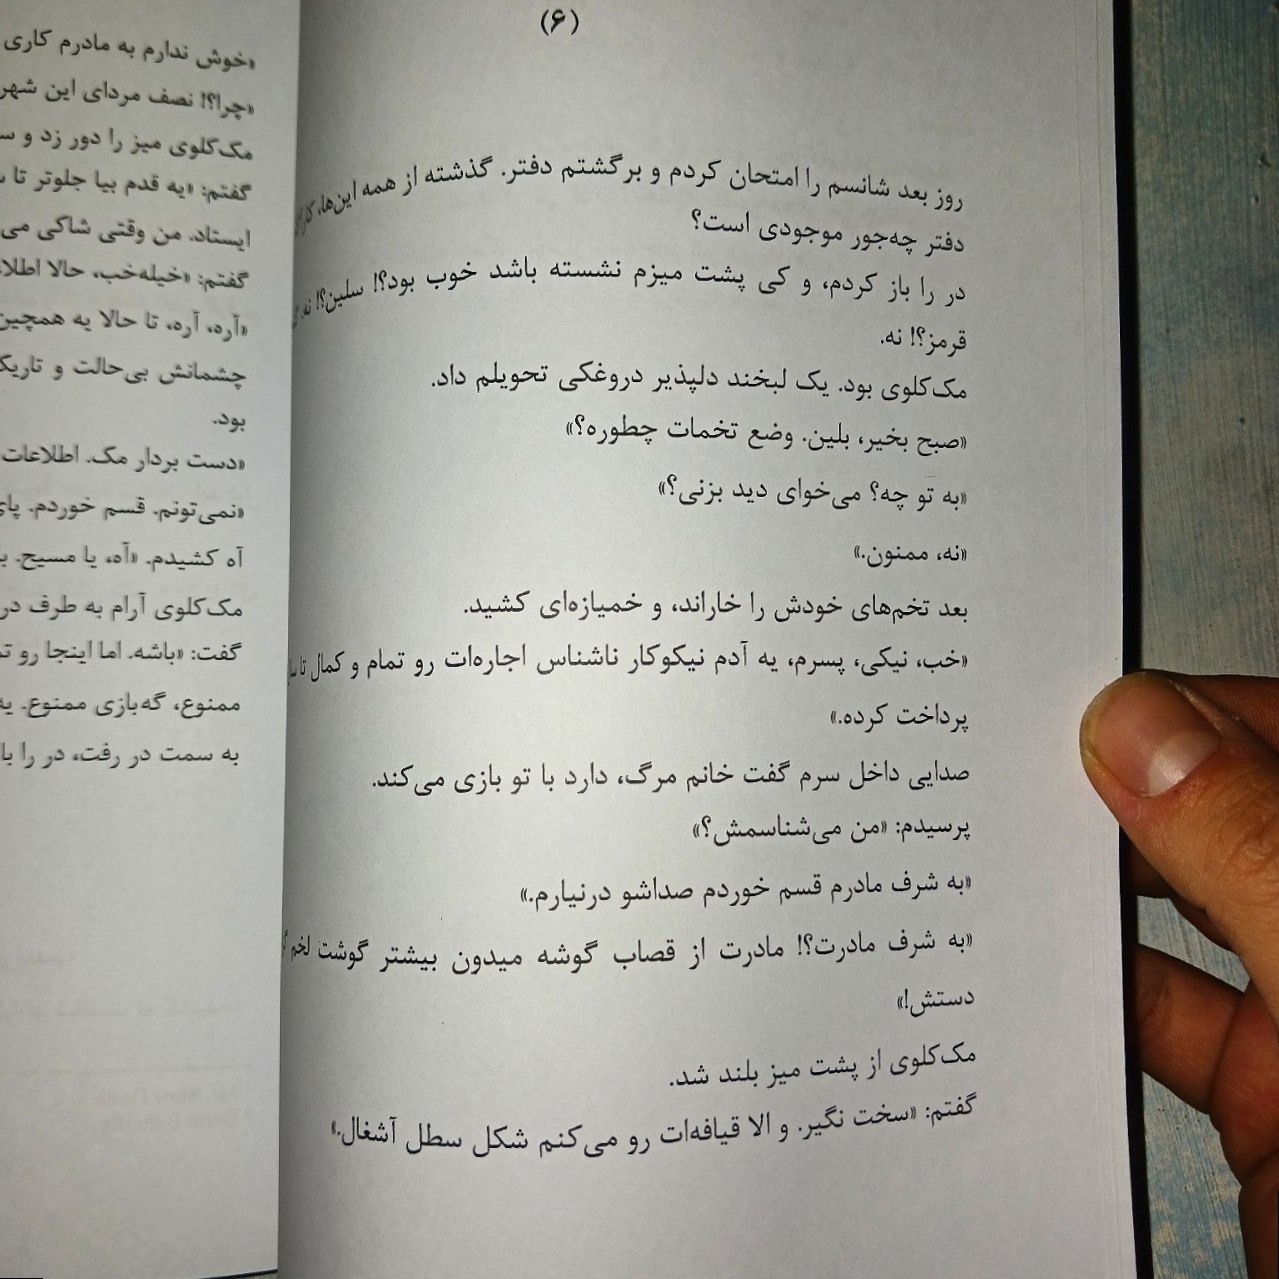 (۶)
روز بعد شانسم را امتحان کردم و برگشتم دفتر. گذشته از همه این‌ها،
دفتر چه‌جور موجودی است؟
در را باز کردم، و کی پشت میزم نشسته باشد خوب بود؟! سلین؟! نه.
قرمز؟! نه.
مک‌کلوی بود. یک لبخند دلپذیر دروغکی تحویلم داد.
«صبح بخیر، بلین. وضع تخمات چطوره؟»
«به تو چه؟ می‌خوای دید بزنی؟»
«نه، ممنون.»
بعد تخم‌های خودش را خاراند، و خمیازه‌ای کشید.
«خب، نیکی، پسرم، یه آدم نیکوکار ناشناس اجاره‌ات رو تمام و کمال تا
پرداخت کرده.»
صدایی داخل سرم گفت خانم مرگ، دارد با تو بازی می‌کند.
پرسیدم: «من می‌شناسمش؟»
«به شرف مادرم قسم خوردم صداشو درنیارم.»
«به شرف مادرت؟! مادرت از قصاب گوشه میدون بیشتر گوشت لخم
دستش!»
مک‌کلوی از پشت میز بلند شد.
گفتم: «سخت نگیر. و الا قیافه‌ات رو می‌کنم شکل سطل آشغال.»
«خوش ندارم به مادرم کاری
«چرا؟! نصف مردای این شهر
مک‌کلوی میز را دور زد و
گفتم: «یه قدم بیا جلوتر تا
ایستاد. من وقتی شاکی می
گفتم: «خیله‌خب، حالا
«آره، آره، تا حالا یه همچین
چشمانش بی‌حالت و تاریک
بود.
«دست بردار مک. اطلاعات
«نمی‌تونم. قسم خوردم. پای
آه کشیدم. «آه، یا مسیح.
مک‌کلوی آرام به طرف در
گفت: «باشه. اما اینجا رو
ممنوع، گه‌بازی ممنوع. یه
به سمت در رفت، در را